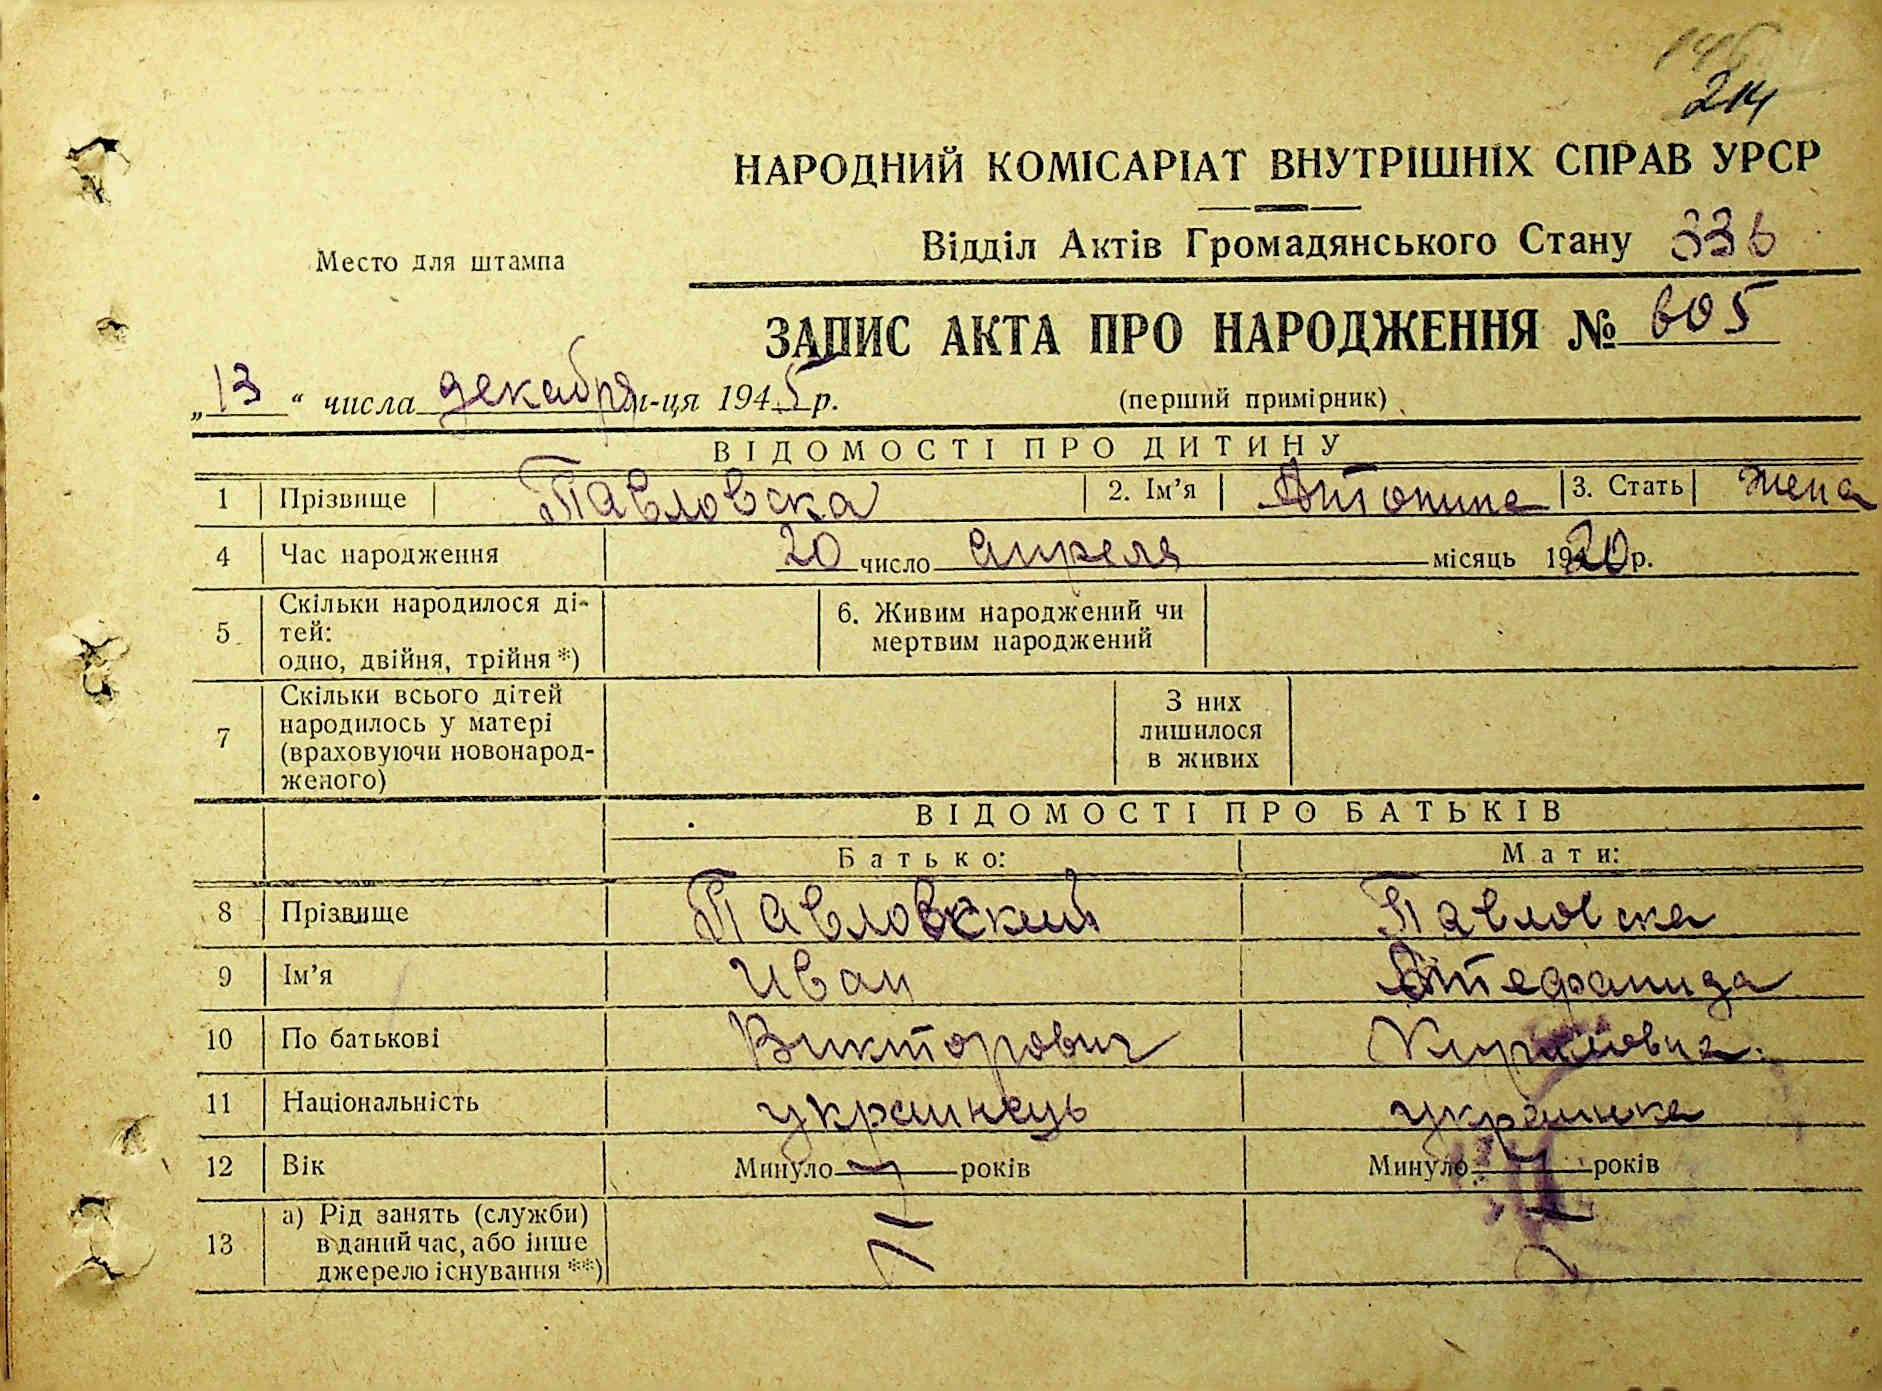 214
НАРОДНИЙ КОМІСАРІАТ ВНУТРІШНІХ СПРАВ УРСР
Место для штампа
Відділ Актів Громадянського Стану
ЗАПИС АКТА ПРО НАРОДЖЕННЯ № 605
„13“ числа декабря м-ця 1945 р.
(перший примірник)
ВІДОМОСТІ ПРО ДИТИНУ
1 Прізвище Павловска 2. Ім’я Антонина 3. Стать жена
4 Час народження 20 число Апреля місяць 1920 р.
5 Скільки народилося ді-
тей:
одно, двійня, трійня *)
6. Живим народжений чи
мертвим народжений
7 Скільки всього дітей
народилось у матері
(враховуючи новонарод-
женого)
З них
лишилося
в живих
ВІДОМОСТІ ПРО БАТЬКІВ
Батько: Мати:
8 Прізвище Павловский Павловска
9 Ім’я Иван Стефанида
10 По батькові Викторович Кириловна
11 Національність украинець украинка
12 Вік Минуло — років Минуло — років
13 а) Рід занять (служби)
в даний час, або інше
джерело існування **)